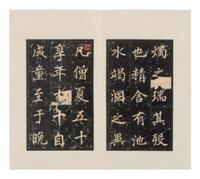 燭之瑞其歿
也精舍有池
水竭涸之異
凡僧夏五十
享年七十自
成童至于晚